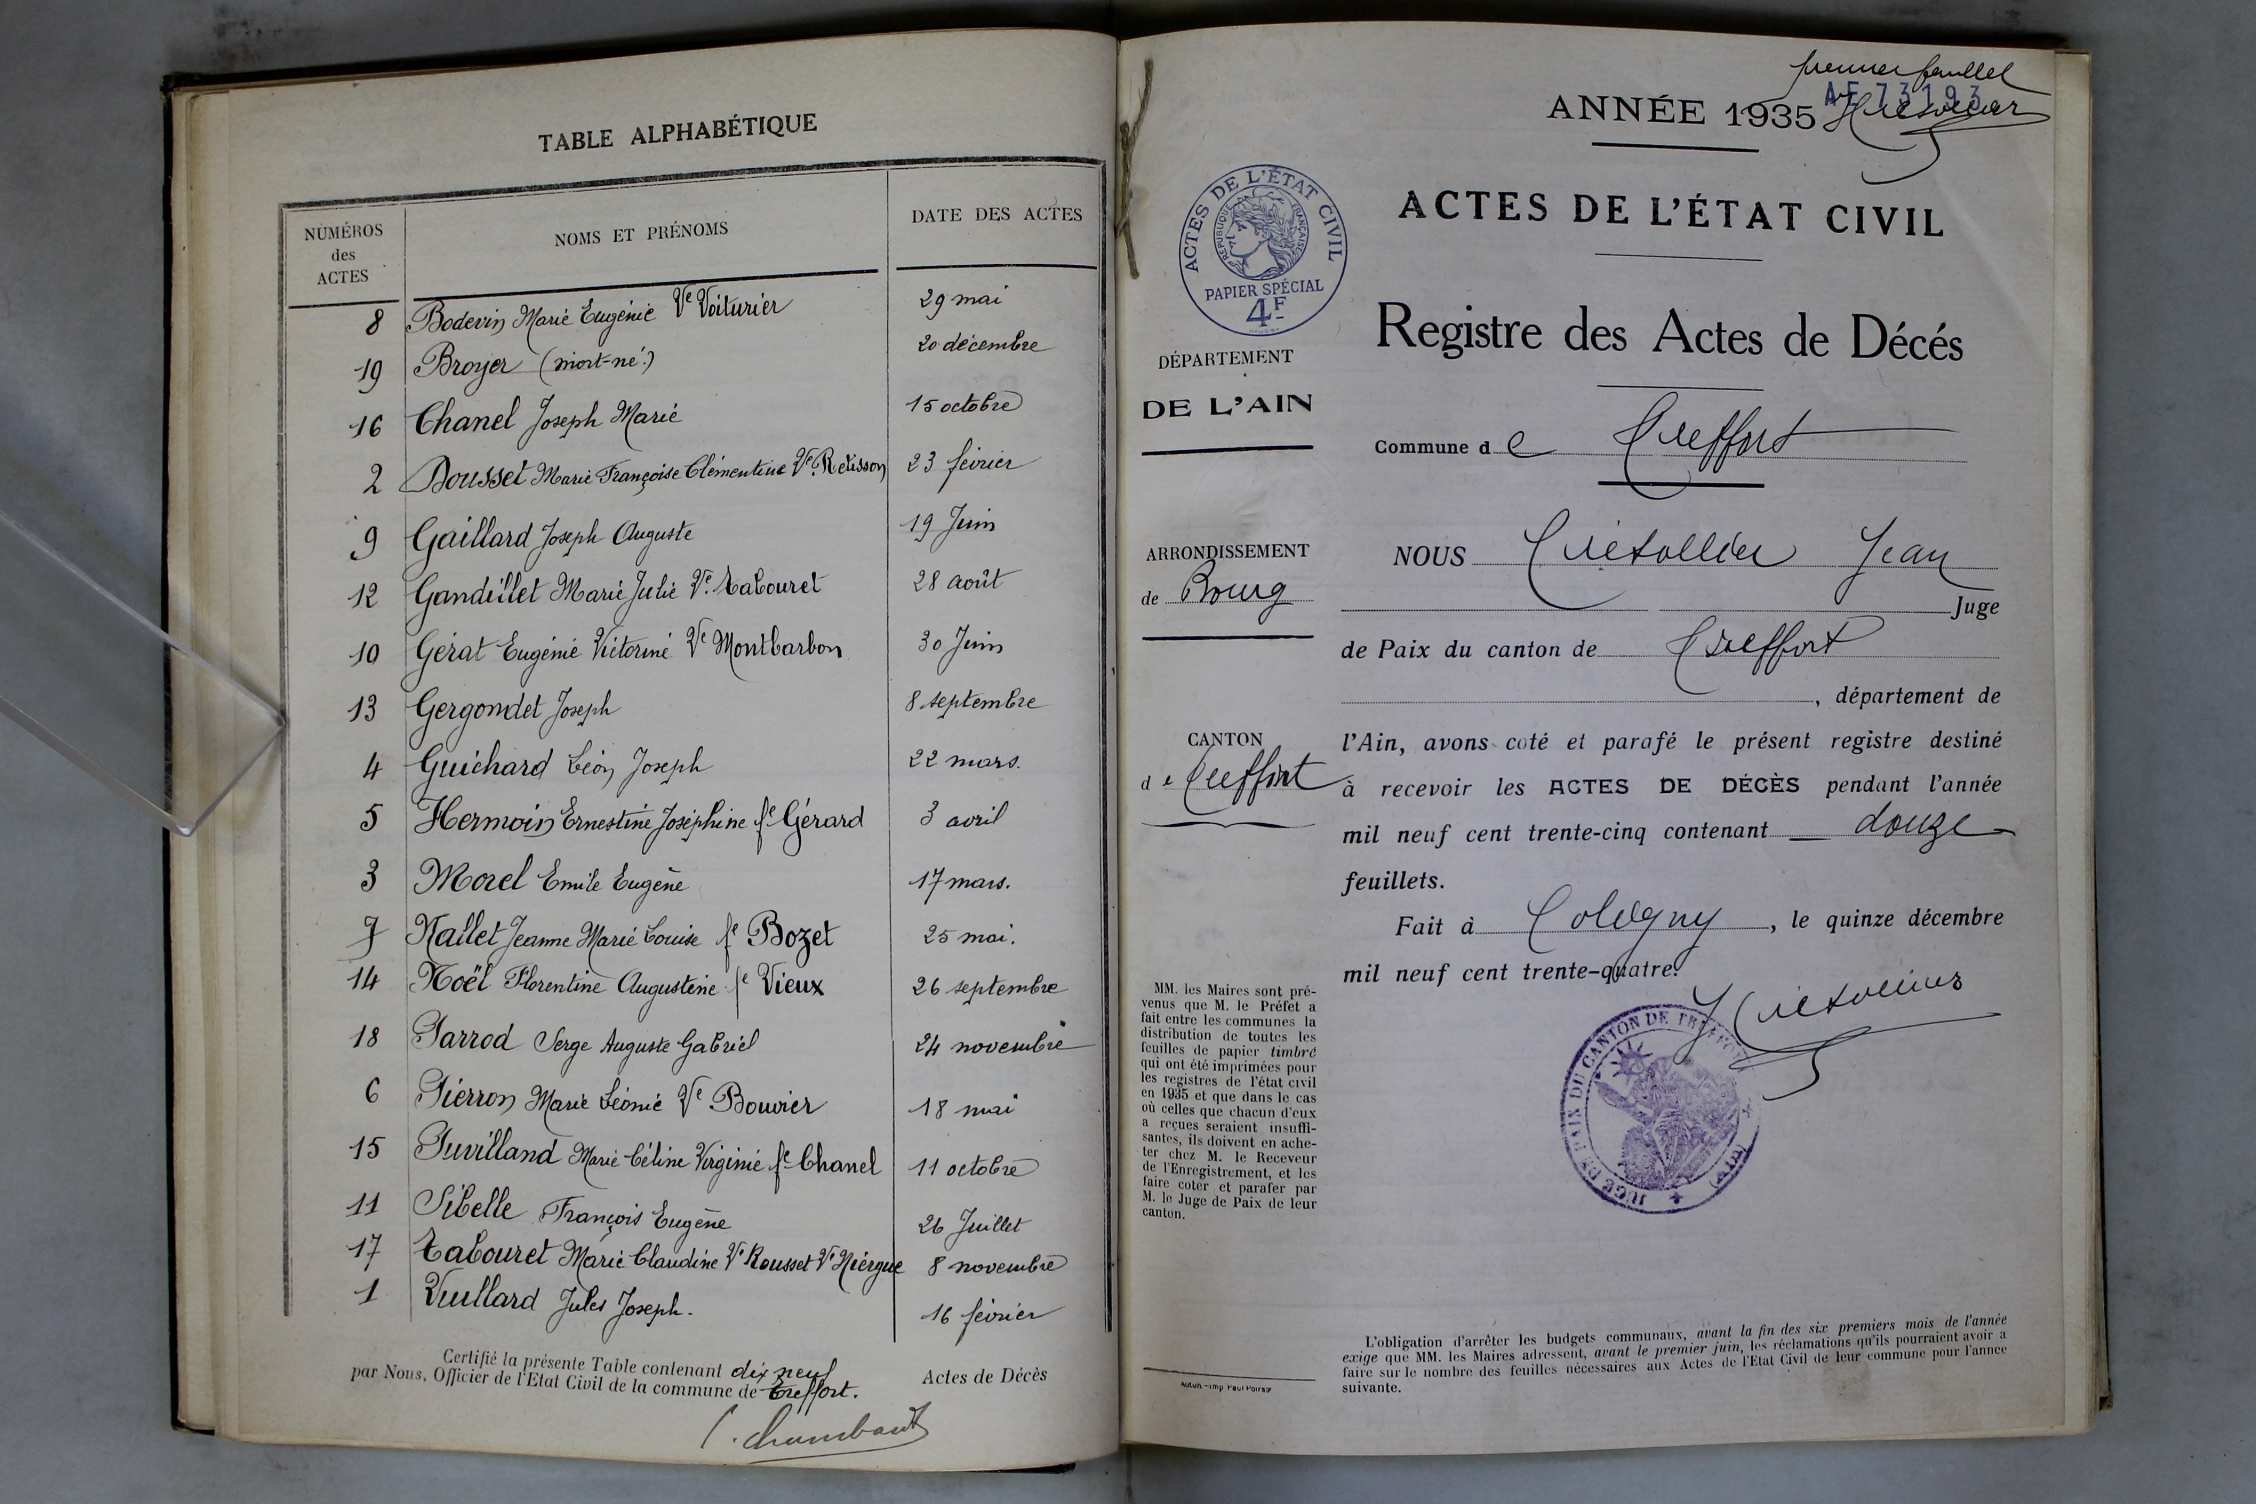 TABLE ALPHABÉTIQUE
NUMÉROS
des
ACTES
NOMS ET PRÉNOMS
DATE DES ACTES
8 Bodevin Marie Eugénie Ve Voiturier 29 mai
19 Broyer (mort-né.) 20 décembre
16 Chanel Joseph Marie 15 octobre
2 Dousset Marie Françoise Clémentine Ve Relisson 23 février
9 Gaillard Joseph Auguste 19 Juin
12 Gandillet Marie Julie Ve Tabouret 28 août
10 Gérat Eugénie Victorine Ve Montbarbon 30 Juin
13 Gergondet Joseph 8 septembre
4 Guichard Léon Joseph 22 mars.
5 Hermoin Ernestine Joséphine fe Gérard 3 avril
3 Morel Emile Eugène 17 mars.
7 Nallet Jeanne Marie Louise fe Bozet 25 mai.
14 Noël Florentine Augustine fe Vieux 26 septembre
18 Parrod Serge Auguste Gabriel 24 novembre
6 Pierron Marie Léonie Ve Bouvier 18 mai
15 Puvilland Marie Céline Virginie fe Chanel 11 octobre
11 Sibelle François Eugène 26 Juillet
17 Tabouret Marie Claudine Ve Rousset Ve Niérgue 8 novembre
1 Vuillard Jules Joseph. 16 février
Certifié la présente Table contenant dix neuf Actes de Décès
par Nous, Officier de l'Etat Civil de la commune de Treffort.
C. Chambaut
premier feuillet
AE 73193
ANNÉE 1935
ACTES DE L'ÉTAT CIVIL
RÉPUBLIQUE FRANÇAISE
PAPIER SPÉCIAL
4F
ACTES DE L'ÉTAT CIVIL
Registre des Actes de Décés
DÉPARTEMENT
DE L'AIN
Commune de Treffort
ARRONDISSEMENT
de Bourg
CANTON
de Treffort
NOUS Jean
Juge
de Paix du canton de Treffort
, département de
l'Ain, avons coté et parafé le présent registre destiné
à recevoir les ACTES DE DÉCÈS pendant l'année
mil neuf cent trente-cinq contenant douze
feuillets.
Fait à Coligny, le quinze décembre
mil neuf cent trente-quatre.
JUGE DE PAIX DU CANTON DE TREFFORT (AIN)
MM. les Maires sont pré-
venus que M. le Préfet a
fait entre les communes la
distribution de toutes les
feuilles de papier timbré
qui ont été imprimées pour
les registres de l'état civil
en 1935 et que dans le cas
où celles que chacun d'eux
a reçues seraient insuffi-
santes, ils doivent en ache-
ter chez M. le Receveur
de l'Enregistrement, et les
faire coter et parafer par
M. le Juge de Paix de leur
canton.
L'obligation d'arrêter les budgets communaux, avant la fin des six premiers mois de l'année
exige que MM. les Maires adressent, avant le premier juin, les réclamations qu'ils pourraient avoir a
faire sur le nombre des feuilles nécessaires aux Actes de l'Etat Civil de leur commune pour l'année
suivante.
Autun. - Imp. Paul Poirson